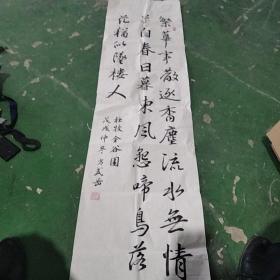 繁華事散逐香塵流水無情
草自春日暮東風怨啼鳥落
花猶似墜樓人
杜牧金谷園
戊戌仲冬